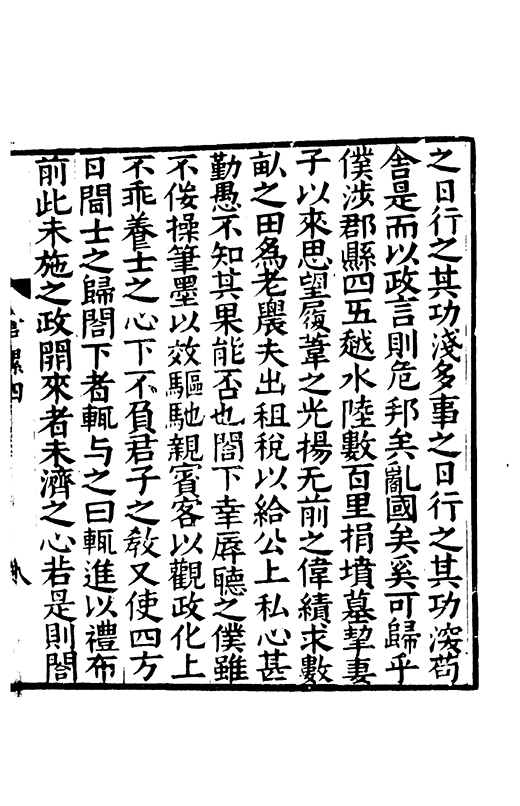 之日行之其功淺多事之日行之其功深苟
舍是而以政言則危邦矣亂國矣奚可歸乎
僕涉郡縣四五越水陸數百里捐墳墓挈妻
子以來思望履葦之光揚无前之偉績求數
畝之田為老農夫出租稅以給公上私心甚
勤愚不知其果能否也閤下幸辱聽之僕雖
不佞操筆墨以效驅馳親賓客以觀政化上
不乖養士之心下不負君子之敎又使四方
日聞士之歸閤下者輒与之曰輒進以禮布
前此未施之政開來者未濟之心若是則閤